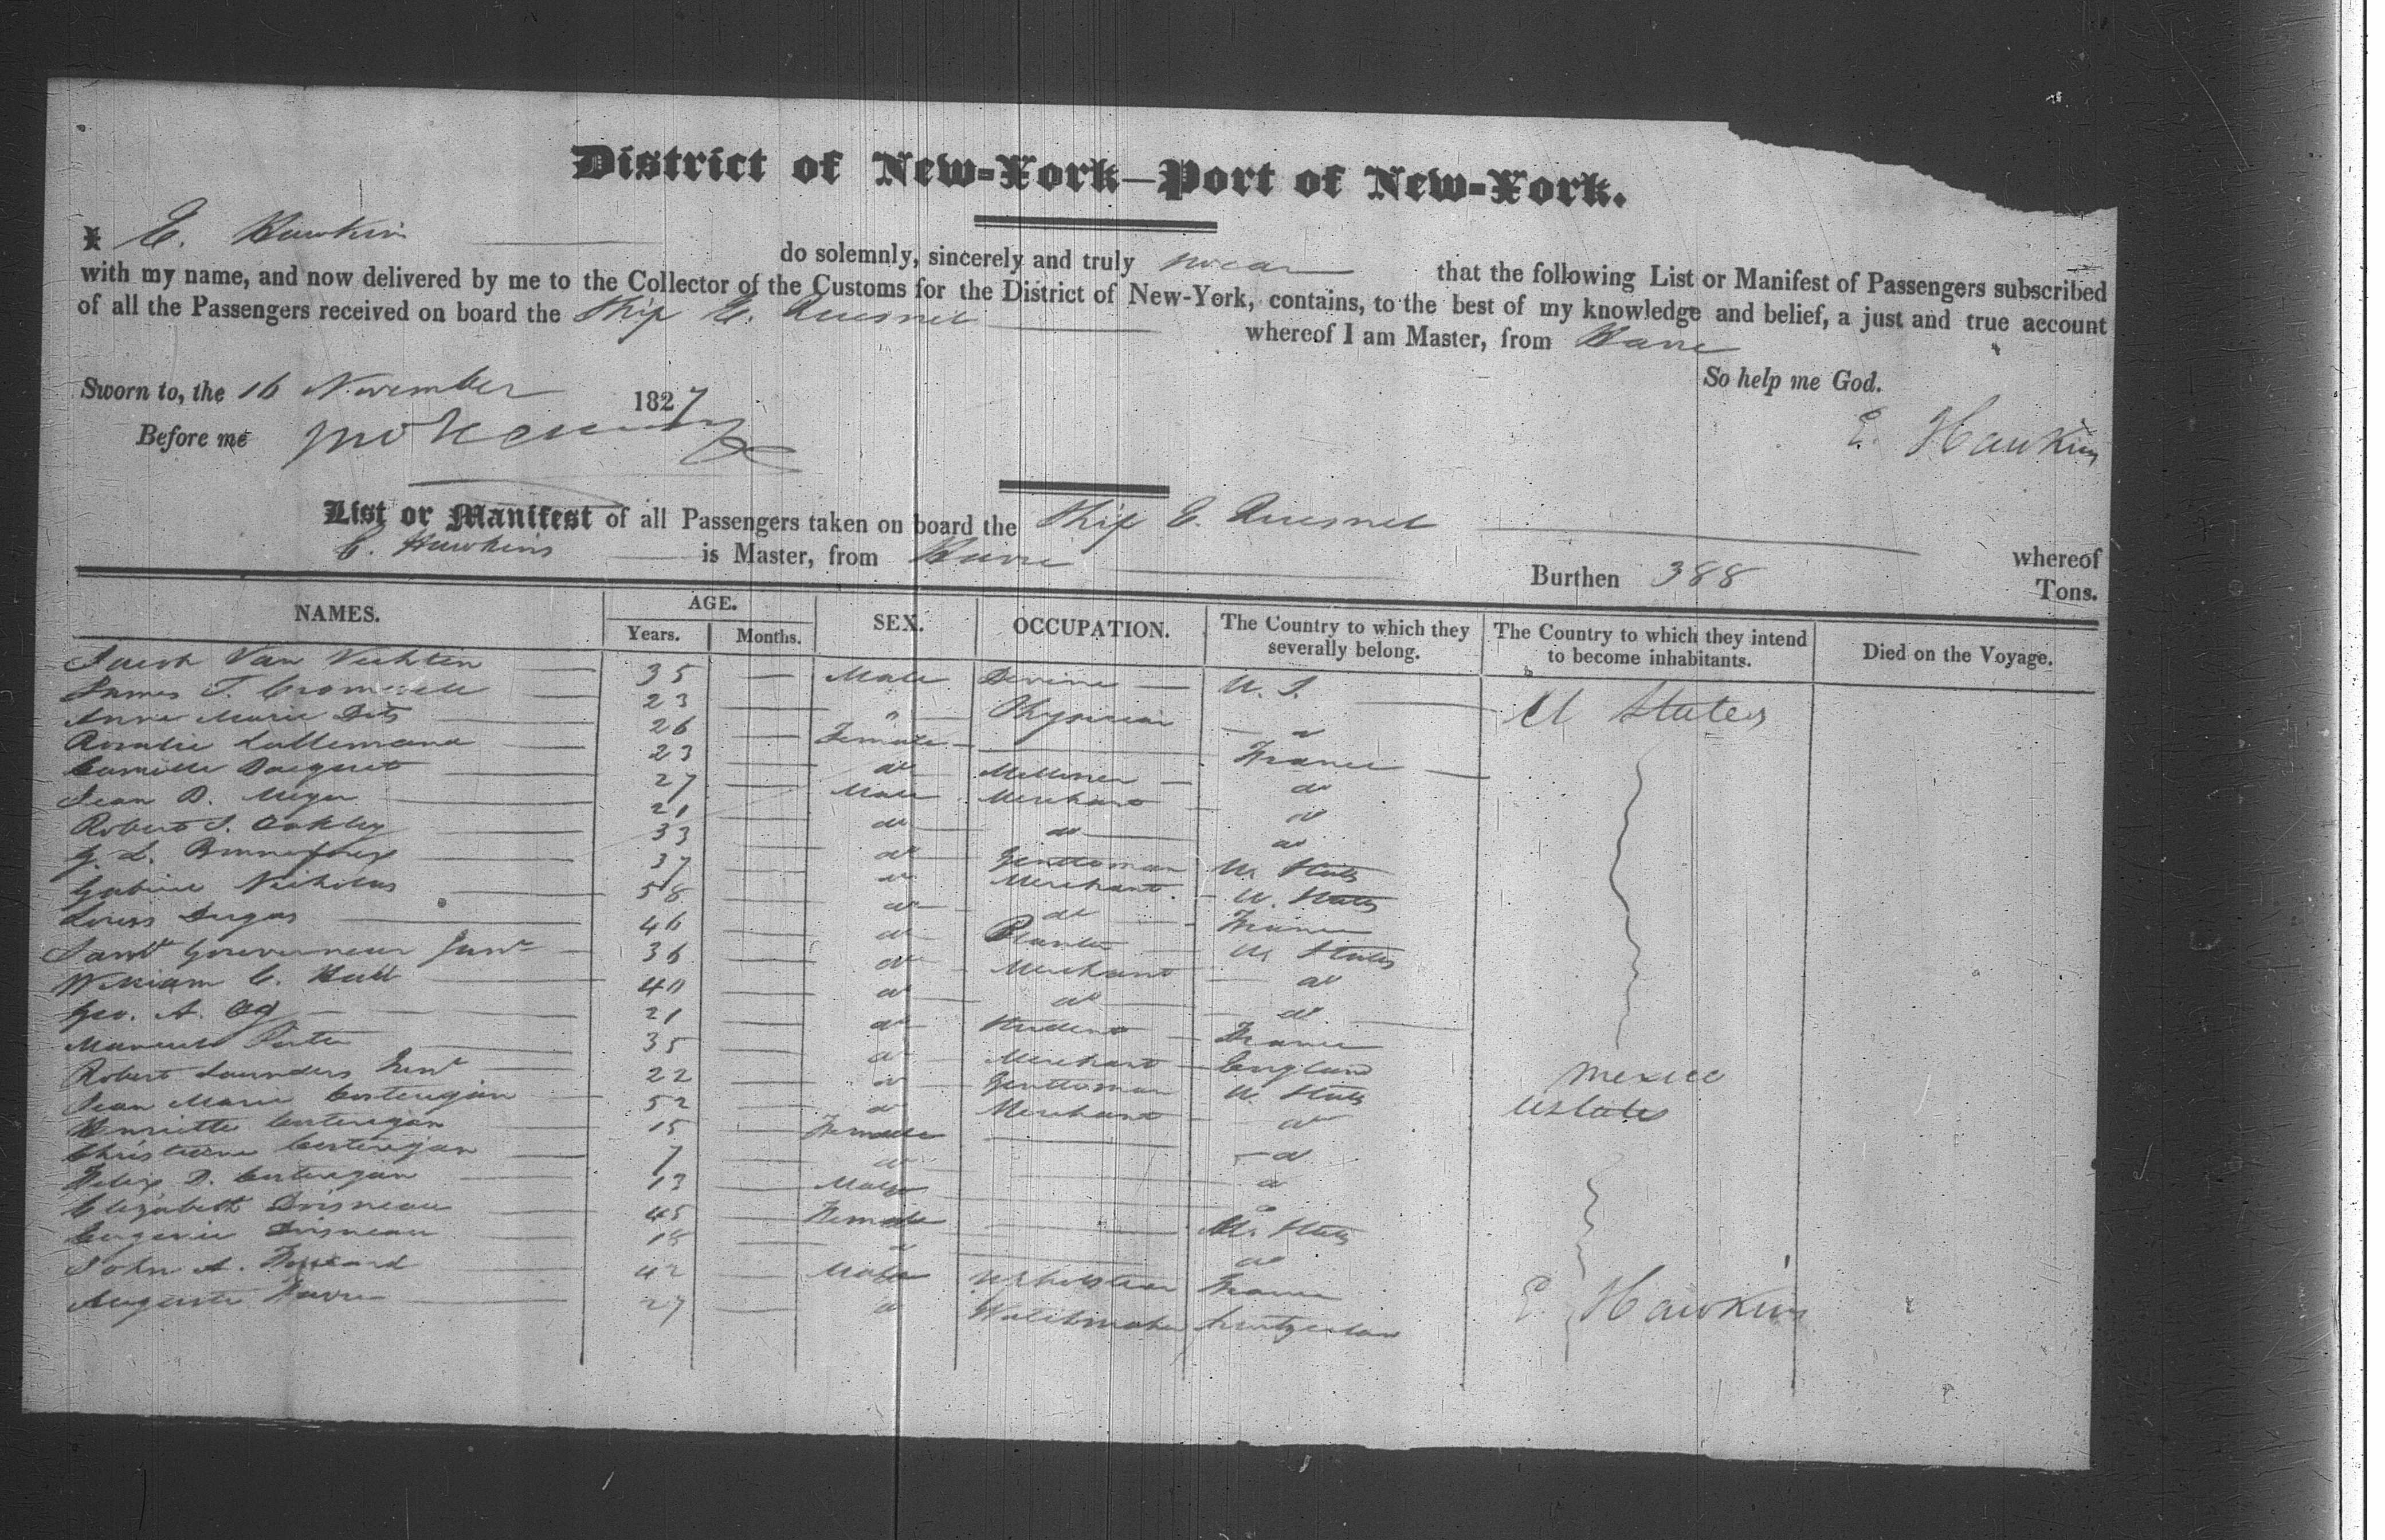 District of New-York—Port of New-York.
I E. Hawkins do solemnly, sincerely and truly swear that the following List or Manifest of Passengers subscribed
with my name, and now delivered by me to the Collector of the Customs for the District of New-York, contains, to the best of my knowledge and belief, a just and true account
of all the Passengers received on board the Ship E. Quesnel whereof I am Master, from Havre
So help me God.
Sworn to, the 16 November 1827
Before me
E. Hawkins
List or Manifest of all Passengers taken on board the Ship E. Quesnel whereof
E. Hawkins is Master, from Havre Burthen 388 Tons.
NAMES. AGE. Years. Months. SEX. OCCUPATION. The Country to which they severally belong. The Country to which they intend to become inhabitants. Died on the Voyage.
Jacob Van Vechten 35 Male Devine U. S. U States
James T. Cromwell 23 " Physician do
Anne Marie 26 Female France
Rosalie Lallemand 23 do Milliner do
Camille 27 Male Merchant do
Jean B. Meyer 21 do do do
Robert S. Oakley 33 do Gentleman U. States
G. L. 37 do Merchant U. States
Gabriel Nicholas 58 do do France
Louis Dugas 46 do Planter U. States
Saml Gouverneur Junr 36 do Merchant do
William C. 40 do do do
Geo. A. 21 do Student France
35 do Merchant England Mexico
Robert Saunders Junr 22 do Gentleman U. States U States
Jean Marie 52 do Merchant do
Henriette 15 Female do
Christine 7 do do
Felix D. 13 Male do
Elizabeth 45 Female U. States
Eugenie 18 do do
John A. 42 Male Upholsterer France
Auguste 27 do Watchmaker Switzerland
E. Hawkins